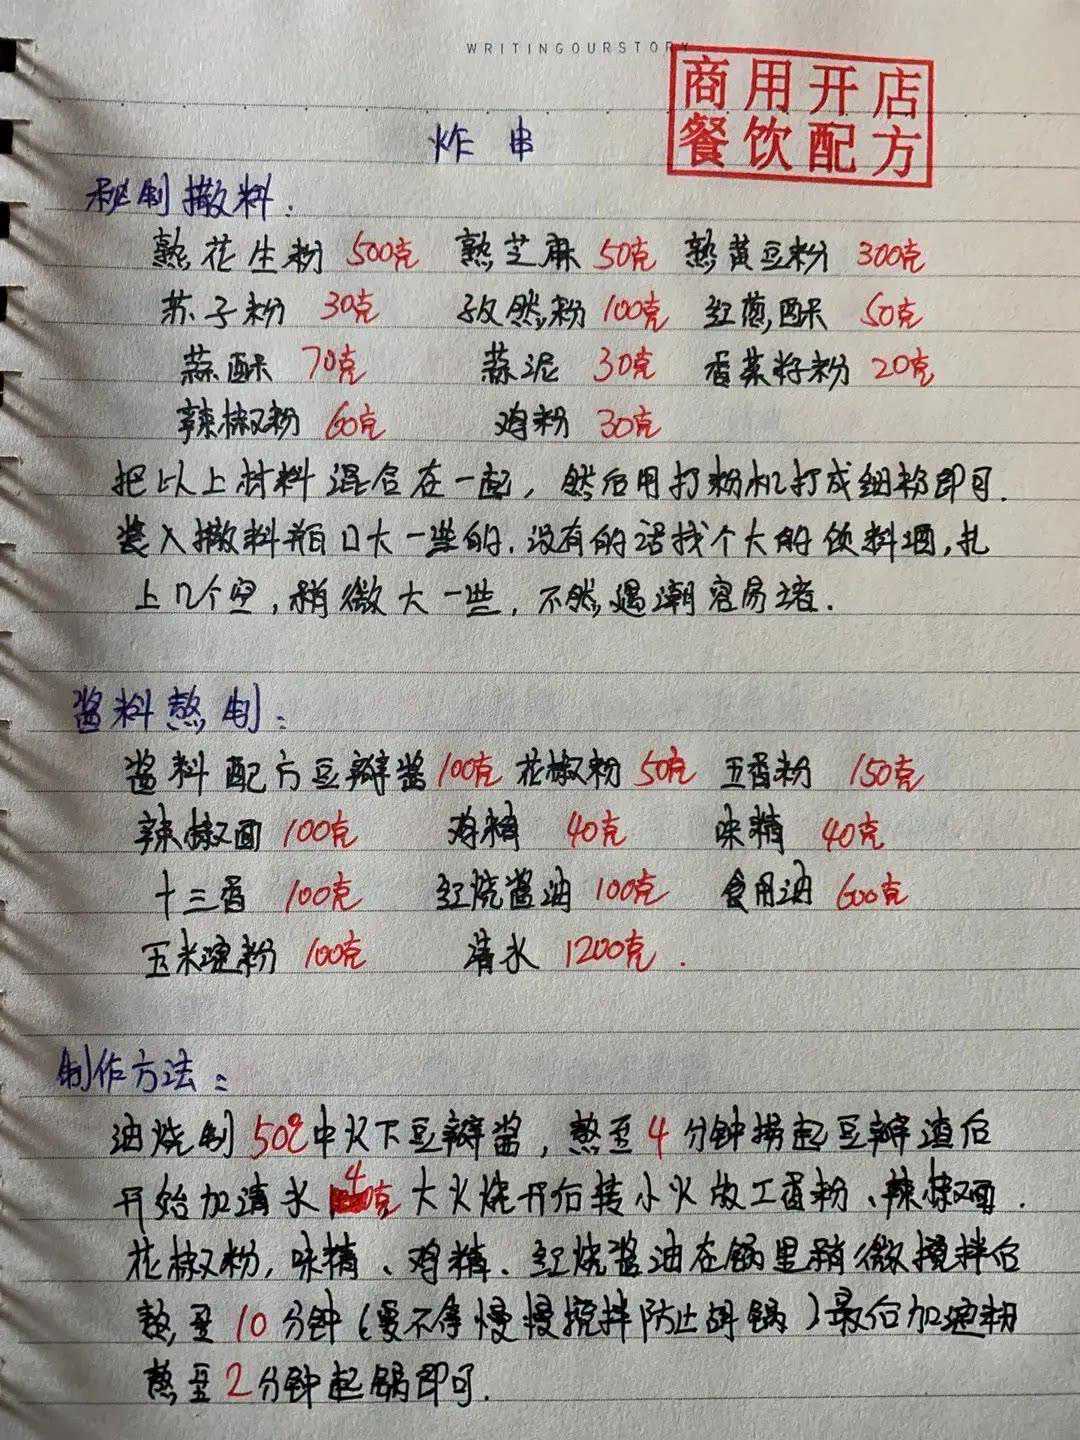 WRITINGOURSTORY
商用开店
餐饮配方
炸串
秘制撒料:
熟花生粉 500克 熟芝麻 50克 熟黄豆粉 300克
苏子粉 30克 孜然粉 100克 红葱酥 50克
蒜酥 70克 蒜泥 30克 香菜籽粉 20克
辣椒粉 60克 鸡粉 30克
把以上材料混合在一起，然后用打粉机打成细粉即可.
装入撒料瓶口大一些的.没有的话找个大的饮料瓶,扎
上几个空,稍微大一些,不然遇潮容易堵.
酱料熬制:
酱料配方豆瓣酱100克 花椒粉 50克 五香粉 150克
辣椒面 100克 鸡精 40克 味精 40克
十三香 100克 红烧酱油 100克 食用油 600克
玉米淀粉 100克 清水 1200克.
制作方法:
油烧制50℃中火下豆瓣酱,熬至4分钟捞起豆瓣渣后
开始加清水 4克 大火烧开后转小火放五香粉、辣椒面.
花椒粉,味精、鸡精、红烧酱油在锅里稍微搅拌后
熬至10分钟(要不停慢慢搅拌防止胡锅)最后加淀粉
熬至2分钟起锅即可.